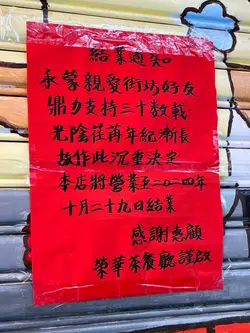 結業通知
永蒙親愛街坊好友
鼎力支持三十数載
光陰荏苒年紀漸長
故作此沉重決定
本店將營業至二〇二四年
十月二十九日結業
感謝惠顧
榮華茶餐廳謹啟